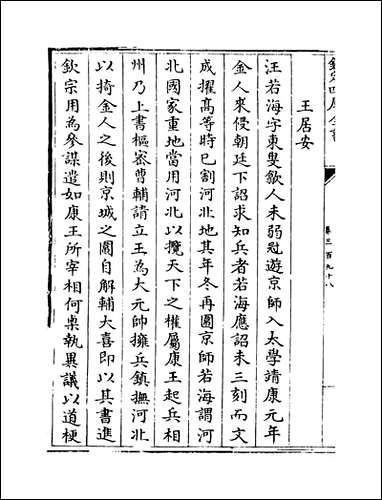 欽定四庫全書
卷三百九十八
王居安
汪若海字東叟歙人未弱冠遊京師入太學靖康元年
金人來侵朝廷下詔求知兵者若海應詔未三刻而文
成擢高等時已割河北地其年冬再圍京師若海謂河
北國家重地當用河北以攬天下之權屬康王起兵相
州乃上書樞密曹輔請立王為大元帥擁兵鎮撫河北
以掎金人之後則京城之圍自解輔大喜即以其書進
欽宗用為參謀遣如康王所宰相何㮚執異議以道梗